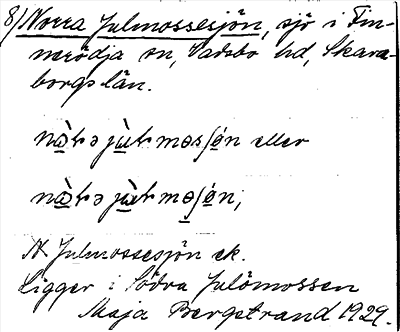 8/ Norra Julmossesjön, sjö i Fin-
nerödja sn, Vadsbo hd, Skara-
borgs län.
nò̀rə jùlməsʃǿn eller
nòrə jùlməʃǿn;
N Julmossesjön ek.
Ligger i Södra Julömossen
Maja Bergstrand 1929.